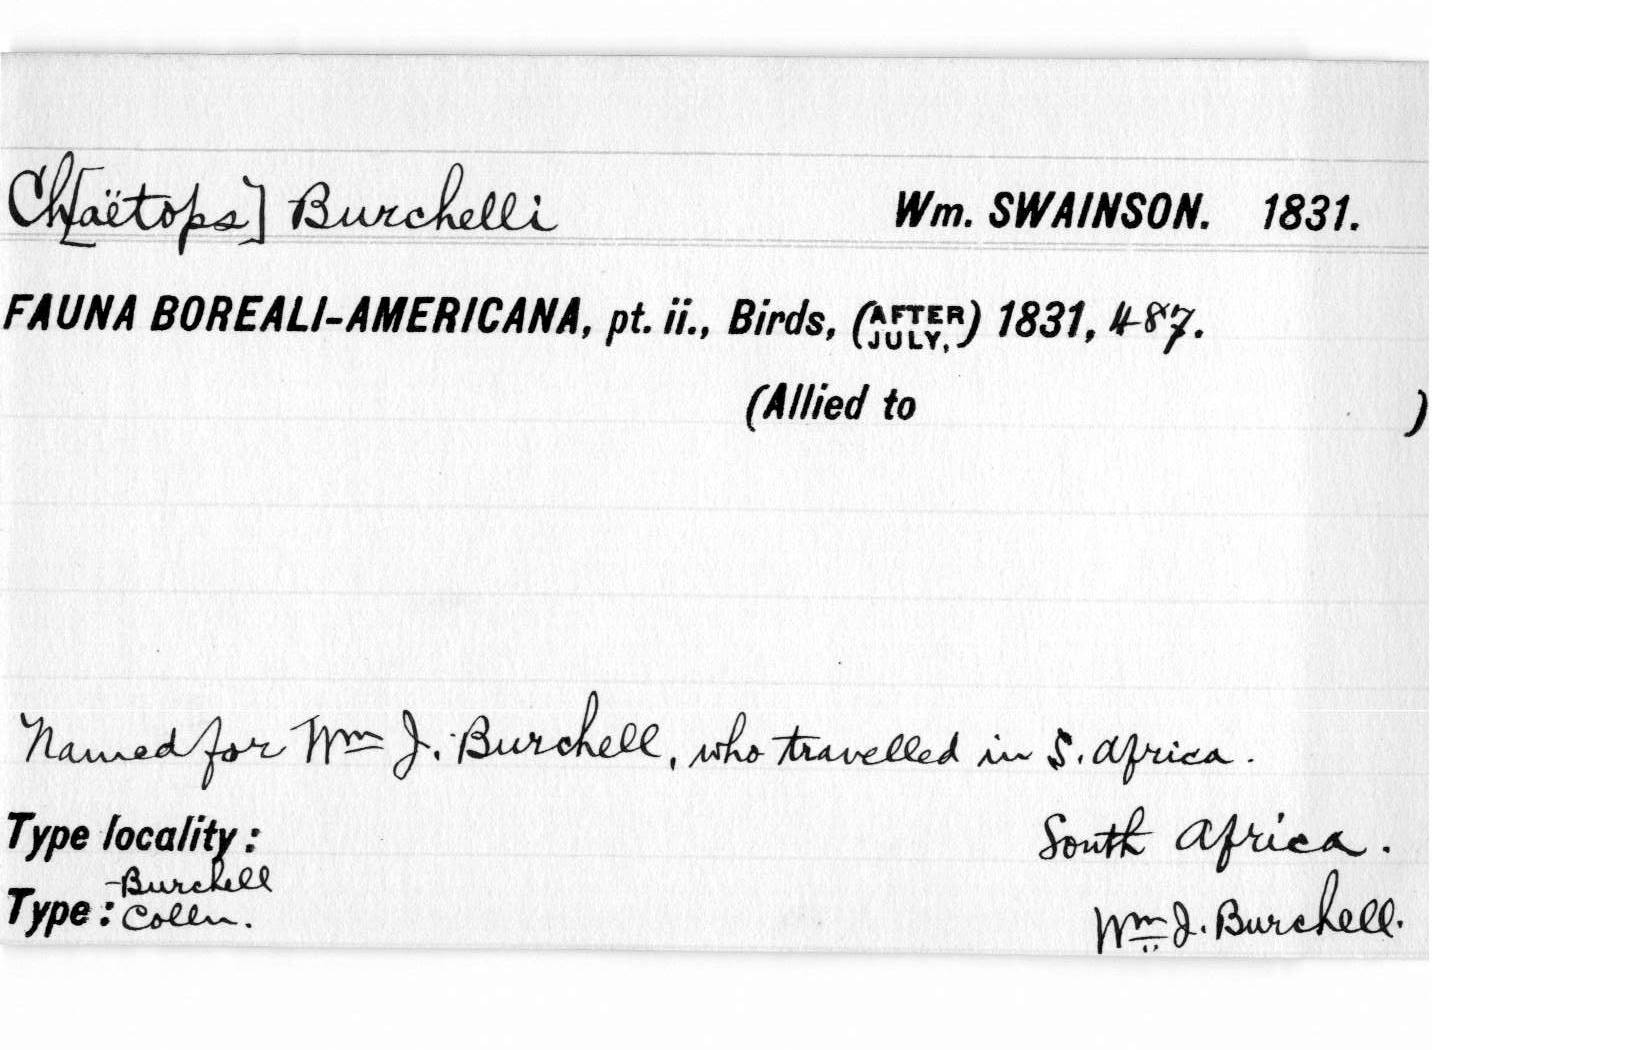 Ch[aëtops] Burchelli Wm. SWAINSON. 1831.
FAUNA BOREALI-AMERICANA, pt. ii., Birds, (AFTER JULY,) 1831, 487.
(Allied to )
Named for Wm J. Burchell, who travelled in S. Africa.
Type locality: South Africa.
Type: Burchell Colln. Wm J. Burchell.